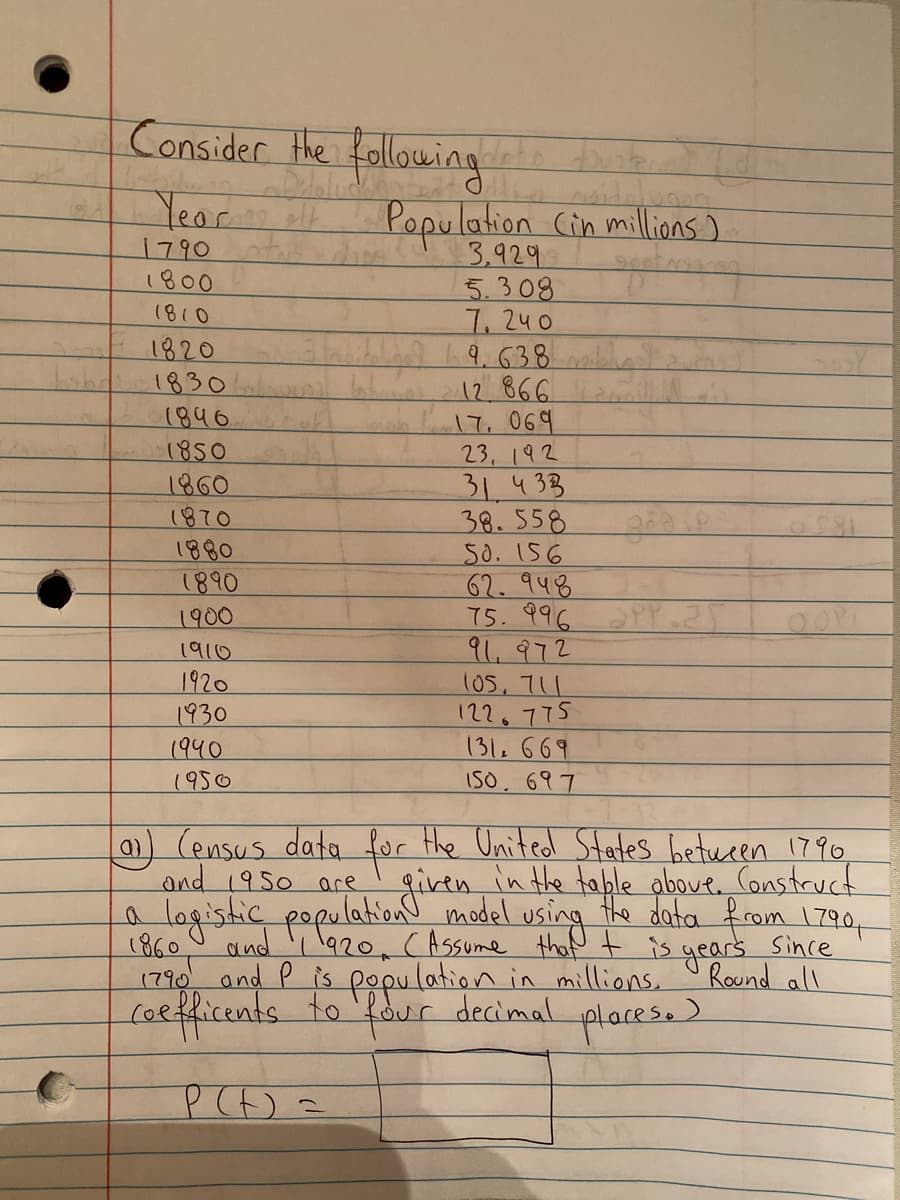 Consider the following
Year Population (in millions)
1790 3,929
1800 5.308
1810 7.240
1820 9.638
1830 12.866
1840 17.069
1850 23,192
1860 31.433
1870 38.558
1880 50.156
1890 62.948
1900 75.996
1910 91.972
1920 105.711
1930 122.775
1940 131.669
1950 150.697
a) Census data for the United States between 1790
and 1950 are given in the table above. Construct
a logistic population model using the data from 1790,
1860 and 1920. (Assume that t is years since
1790 and P is population in millions. Round all
coefficents to four decimal places.)
P(t) =